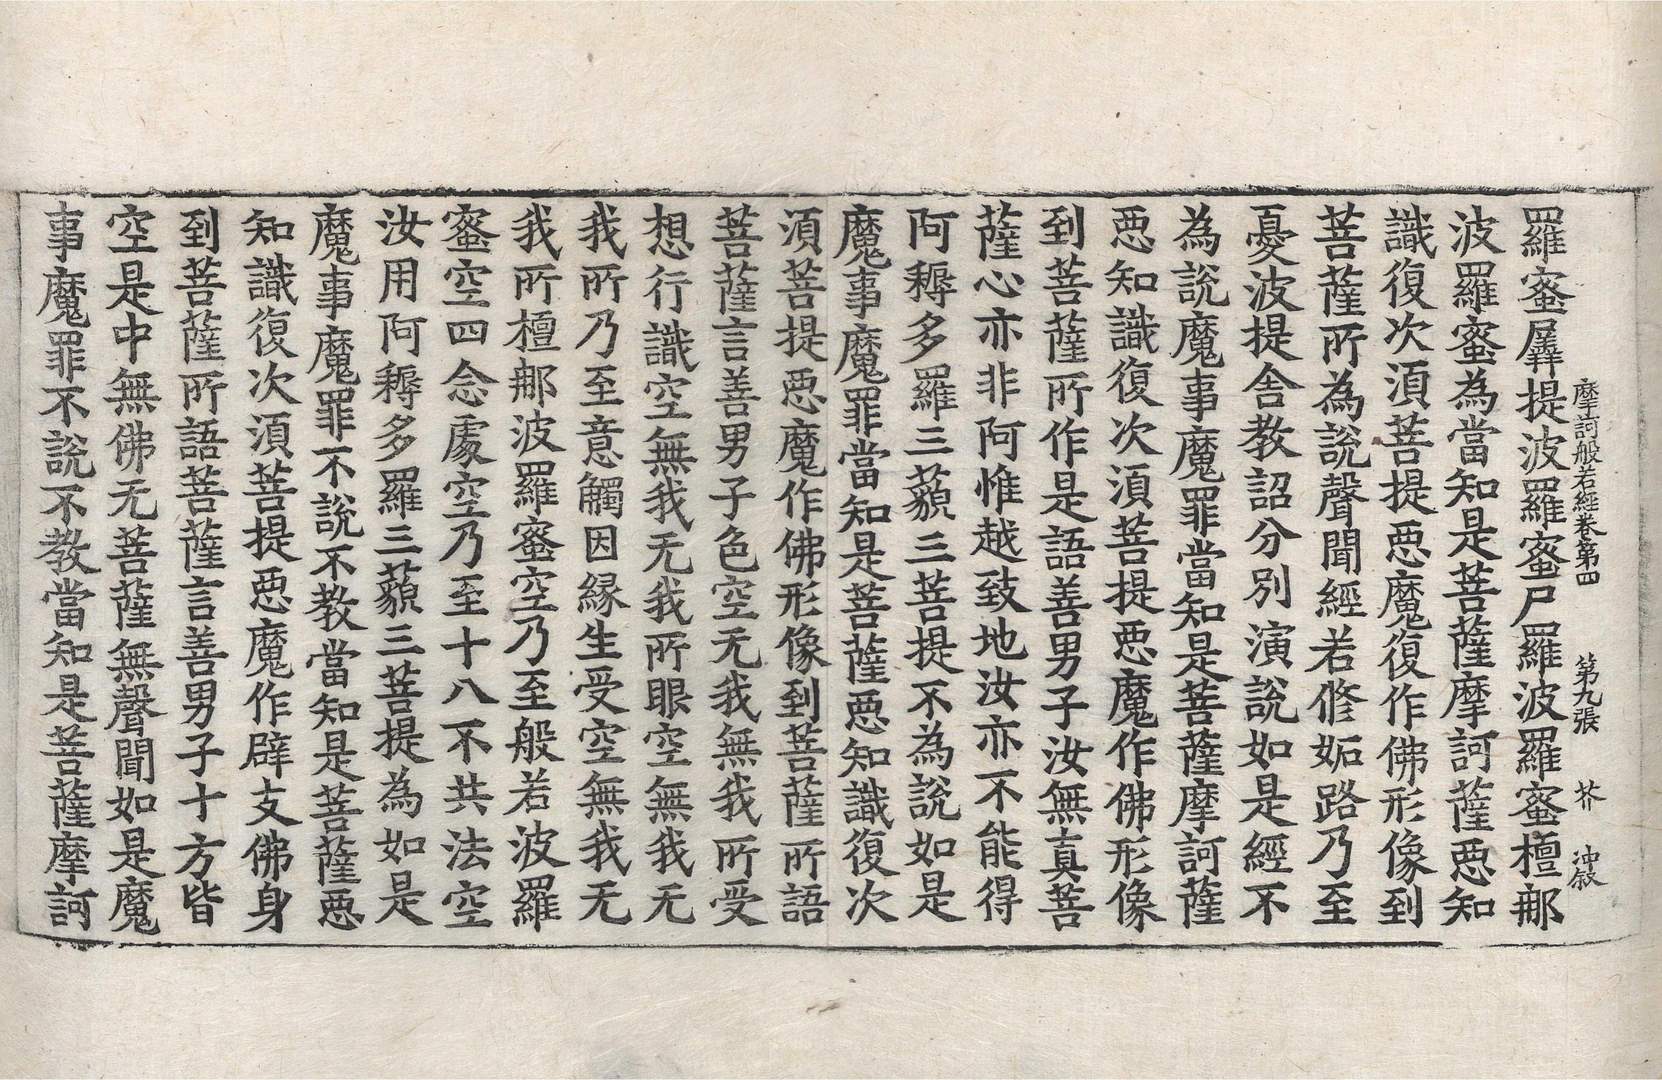 摩訶般若經卷第四 第九張 芥 冲叙
羅蜜羼提波羅蜜尸羅波羅蜜檀那
波羅蜜為當知是菩薩摩訶薩悪知
識復次湏菩提悪魔復作佛形像到
菩薩所為說聲聞經若修妬路乃至
憂波提舍教詔分別演說如是經不
為說魔事魔罪當知是菩薩摩訶薩
悪知識復次湏菩提悪魔作佛形像
到菩薩所作是語善男子汝無真菩
薩心亦非阿惟越致地汝亦不能得
阿耨多羅三藐三菩提不為說如是
魔事魔罪當知是菩薩悪知識復次
湏菩提悪魔作佛形像到菩薩所語
菩薩言善男子色空无我無我所受
想行識空無我无我所眼空無我无
我所乃至意觸因緣生受空無我无
我所檀那波羅蜜空乃至般若波羅
蜜空四念處空乃至十八不共法空
汝用阿耨多羅三藐三菩提為如是
魔事魔罪不說不教當知是菩薩悪
知識復次湏菩提悪魔作辟支佛身
到菩薩所語菩薩言善男子十方皆
空是中無佛无菩薩無聲聞如是魔
事魔罪不說不教當知是菩薩摩訶